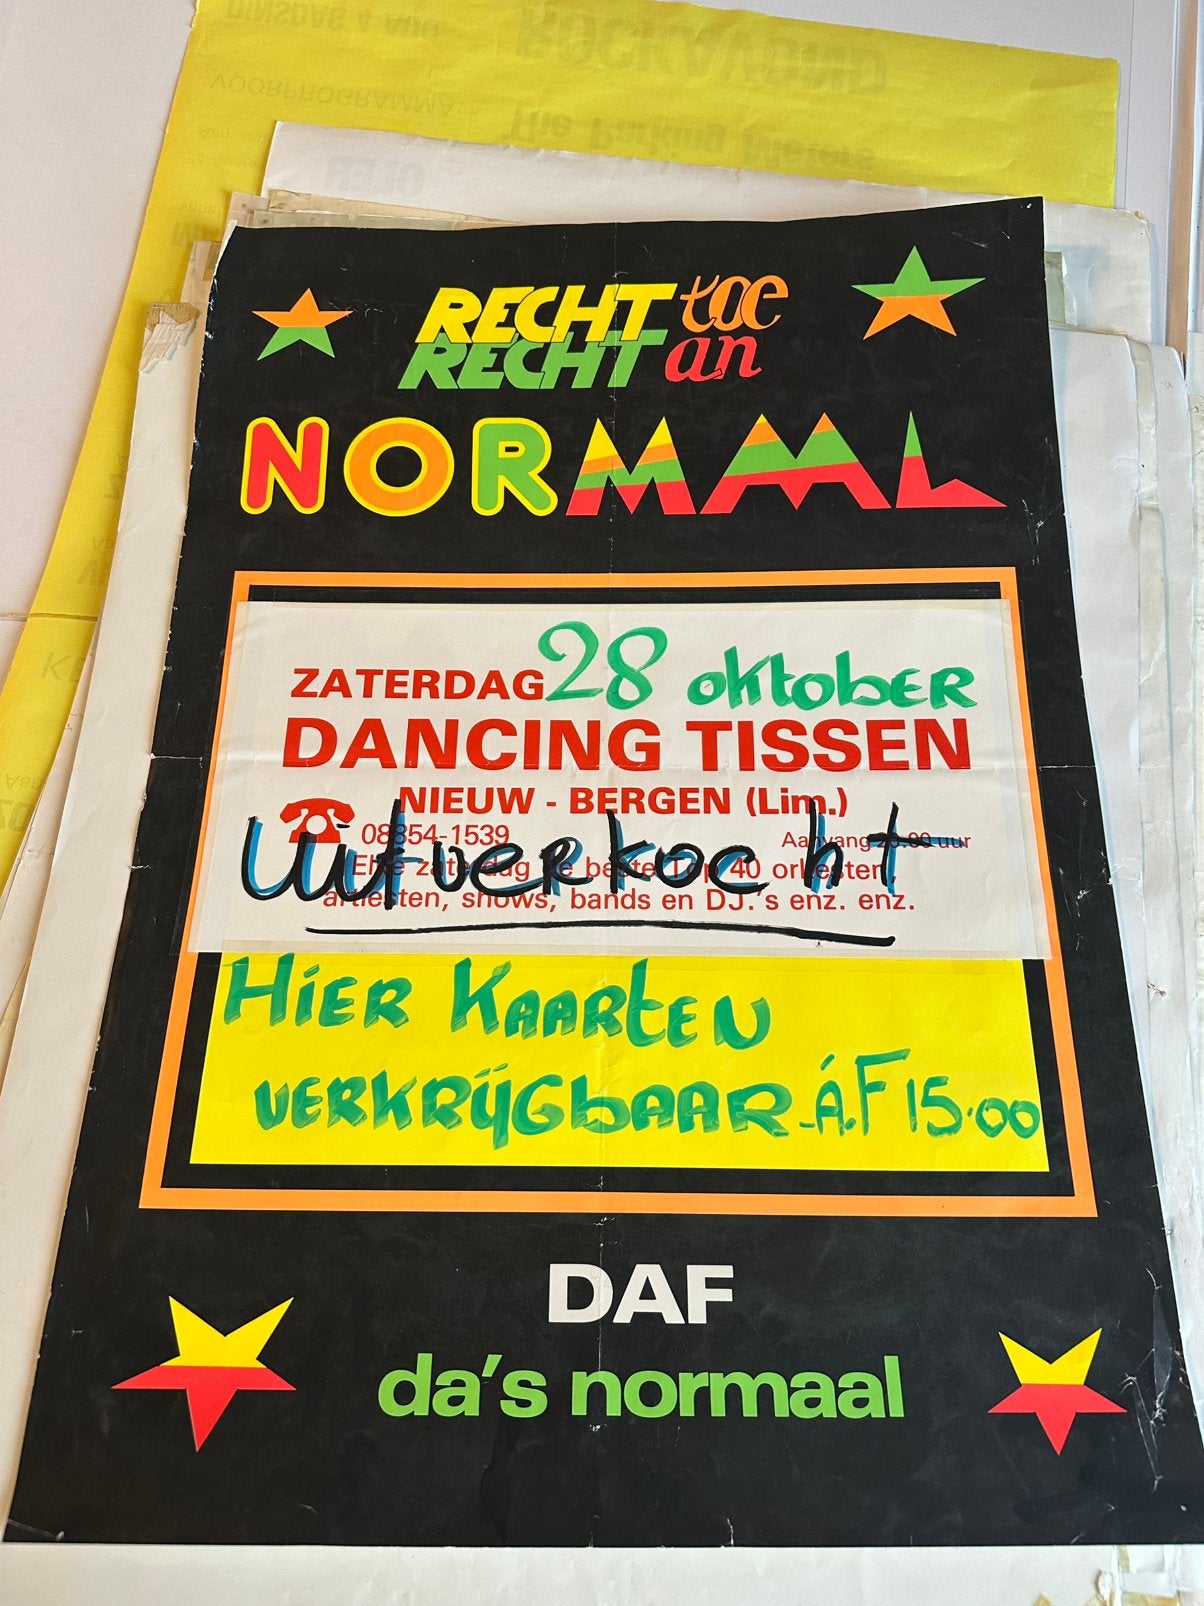 DINSDAG 4 AUG
ROCKAVOND
VOORPROGRAMMA:
The Parking Meters
RECHT toe
RECHT an
NORMAAL
ZATERDAG 28 oktober
DANCING TISSEN
NIEUW - BERGEN (Lim.)
08854-1539
Aanvang 20.00 uur
Elke zaterdag de beste Top 40 orkesten,
artiesten, shows, bands en DJ.'s enz. enz.
Uitverkocht
Hier Kaarten
verkrijgbaar - á.F 15.00
DAF
da's normaal